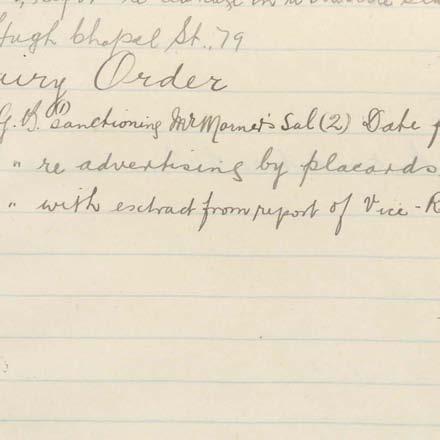 Hugh Chapel St., 79
Dairy Order
G. B. (1) Sanctioning Mr Morner's Sal (2) Date
" re advertising by placards
" with extract from report of Vice-R